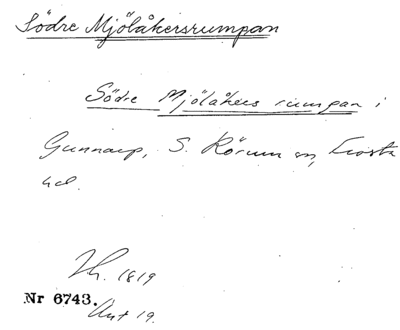 Södre Mjölåkersrumpan
Södre Mjölåkers rumpan i
Gunnarp, S. Rörum sn, Frosta
hd.
Th. 1819
Nr 6743.
Akt 19.